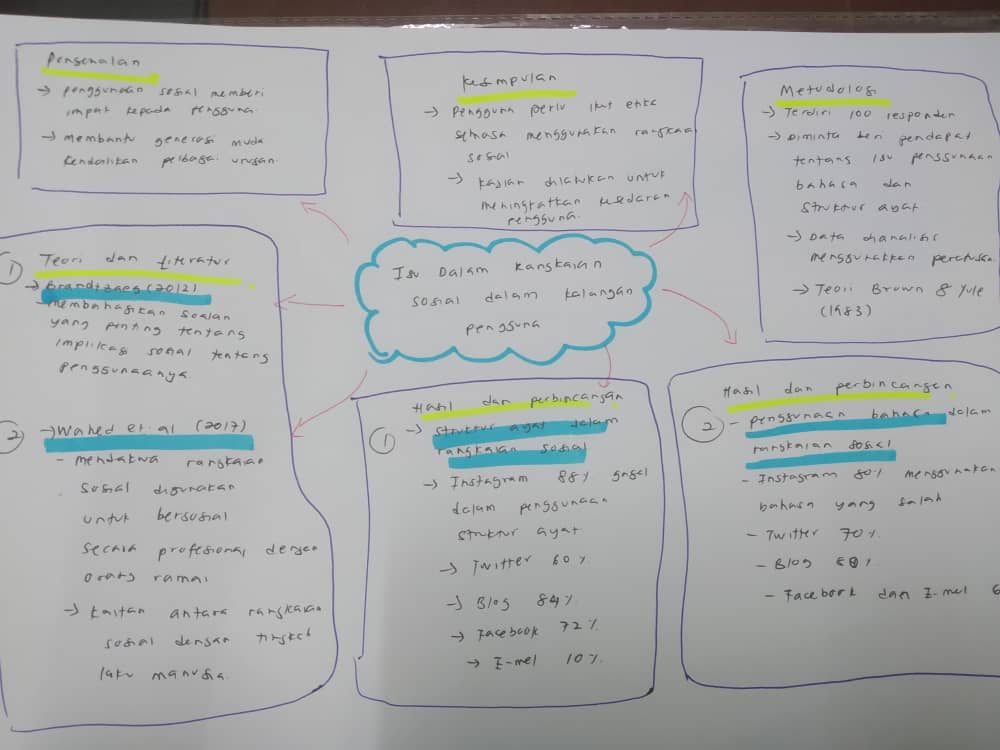 Pengenalan
→ penggunaan sosial memberi
impak kepada pengguna.
→ membantu generasi muda
kendalikan pelbagai urusan.
Kesimpulan
→ Pengguna perlu ikut etika
semasa menggunakan rangkaian
sosial
→ kajian dilakukan untuk
meningkatkan kesedaran
pengguna.
Metodologi
→ Terdiri 100 responden
→ Diminta beri pendapat
tentang isu penggunaan
bahasa dan
struktur ayat
→ Data dianalisis
menggunakan peratusan
→ Teori Brown & Yule
(1983)
Isu Dalam Rangkaian
sosial dalam kalangan
pengguna
① Teori dan literatur
→ Brandtzaeg (2012)
- membahagikan soalan
yang penting tentang
implikasi sosial tentang
penggunaanya.
2 → Wahed et.al (2017)
- mendakwa rangkaian
sosial digunakan
untuk bersosial
secara profesional dengan
orang ramai
→ kaitan antara rangkaian
sosial dengan tingkah
laku manusia.
Hasil dan perbincangan
① → struktur ayat dalam
rangkaian sosial
→ Instagram 88% gagal
dalam penggunaan
struktur ayat
→ Twitter 60%
→ Blog 84%
→ Facebook 72%
→ E-mel 10%
Hasil dan perbincangan
② - penggunaan bahasa dalam
rangkaian sosial
- Instagram 80% menggunakan
bahasa yang salah
- Twitter 70%
- Blog
- Facebook dan E-mel